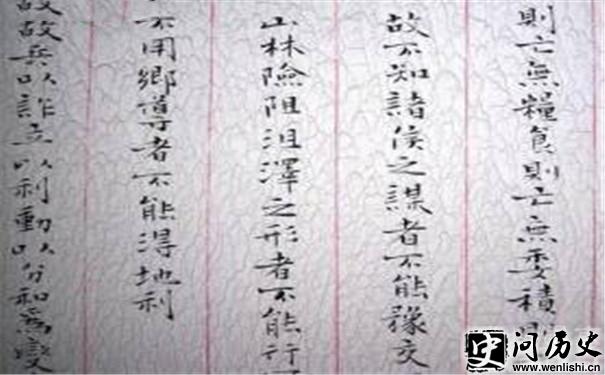 則亡無糧食則亡無委積則
故不知諸侯之謀者不能豫交
山林險阻沮澤之形者不能行
不用鄉導者不能得地利
故兵以詐立以利動以分和為變
史问历史
www.wenlishi.cn